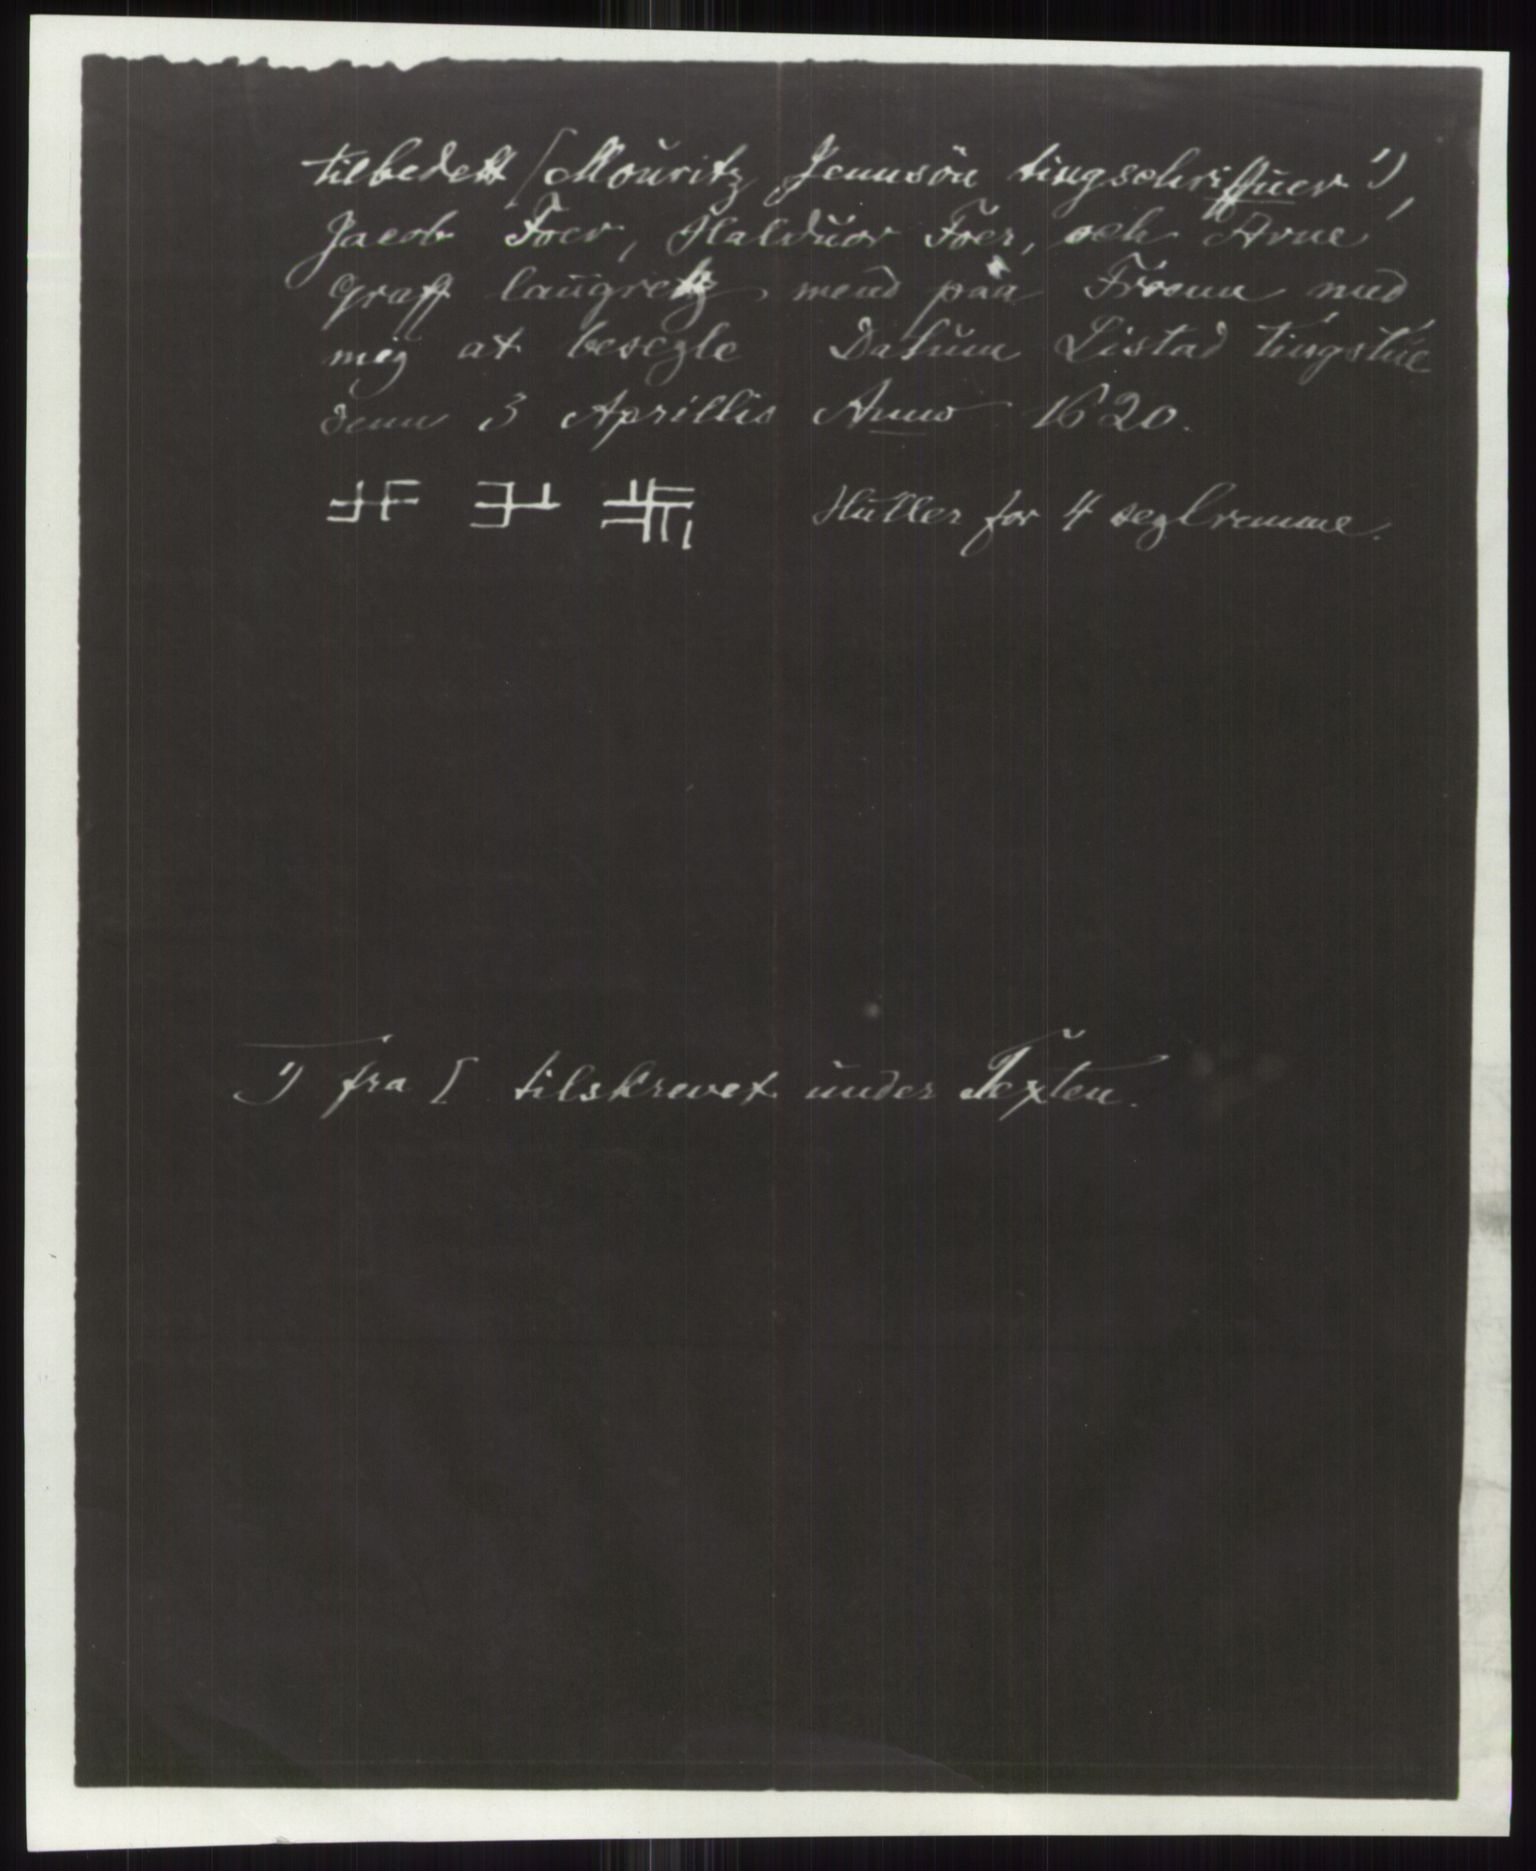 tilbedett [Mouritz Jennsøn tingschriffuer ¹),
Jacob Foer, Halduor Foer, och Arne
Graff laugretz mend paa Froenn med
meg at besegle Datum Listad tingstue
denn 3 Aprillis Anno 1620.
Huller for 4 seglremme.
¹) fra [ tilskrevet under Texten.